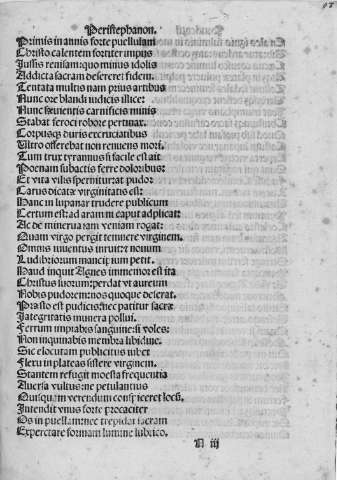 Peristephanon.
Primis in annis forte puellulam
Christo calentem fortiter impiis
Jussis renisam: quo minus idolis
Addicta sacram desereret fidem.
Tentata multis nam prius artibus
Nunc ore blandi iudicis illice:
Nunc seuientis carnificis minis
Stabat feroci robore pertinax.
Corpusq; duris excruciatibus
Ultro offerebat non renuens mori.
Tum trux tyrannus si facile est ait
Poenam subactis ferre doloribus:
Et vita vilis spernitur: at pudor
Carus dicatae virginitatis est:
Hanc in lupanar trudere publicum
Certum est: ad aram ni caput adplicat:
Ac de minerua iam veniam rogat:
Quam virgo pergit temnere virginem.
Omnis iuuentus inruit: et nouum
Ludibriorum mancipium petit.
Haud inquit Agnes immemor est ita
Christus suorum: perdat vt aureum
Nobis pudorem: nos quoque deserat.
Praesto est pudicis: nec patitur sacrae
Integritatis munera pollui.
Ferrum impiabis sanguine: si voles:
Non inquinabis membra libidine.
Sic elocutam publicitus iubet
Flexu in plateae sistere virginem.
Stantem refugit moesta frequentia
Auersa vultus: ne petulantius
Quisquam verendum conspiceret locum.
Intendit vnus forte procaciter
Os in puellam: nec trepidat sacram
Expectare formam lumine lubrico.
N iii